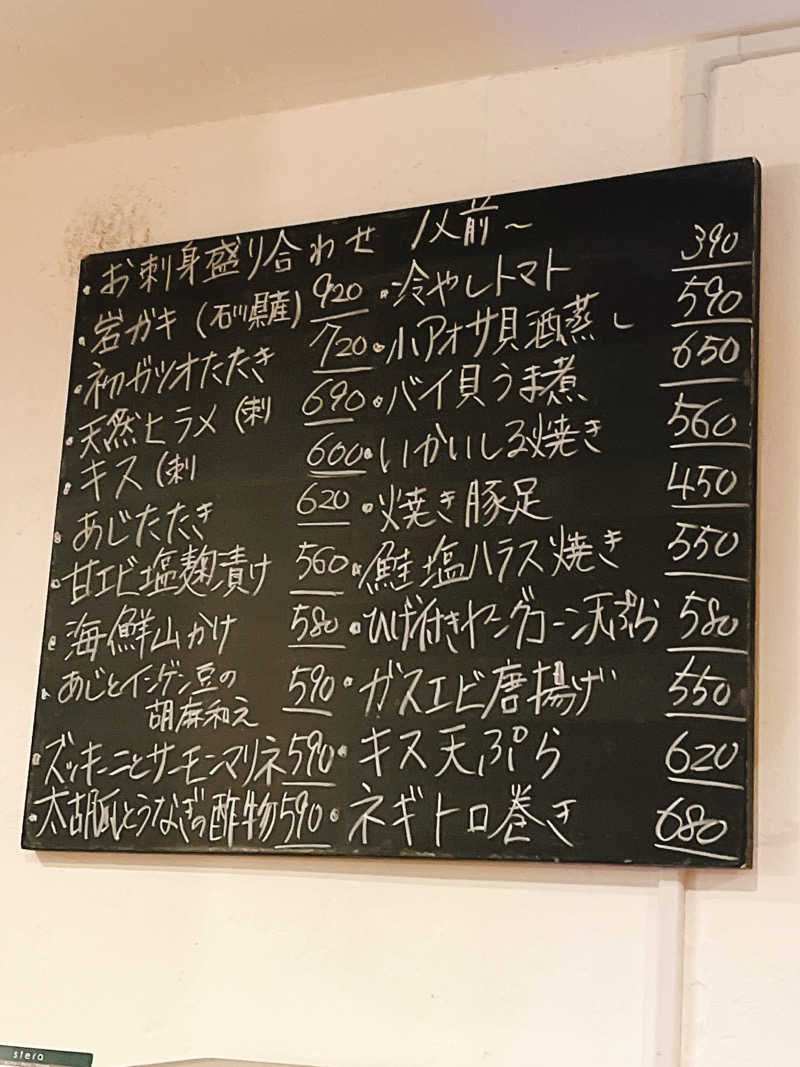 ・お刺身盛り合わせ 1人前~
・岩ガキ (石川県産) 920
・初ガツオたたき 720
・天然ヒラメ (刺 690
・キス (刺 600
・あじたたき 620
・甘エビ塩麹漬け 560
・海鮮山かけ 580
・あじとインゲン豆の
胡麻和え 590
・ズッキーニとサーモンマリネ 590
・太胡瓜とうなぎの酢物 590
・冷やしトマト 390
・小アオサ貝酒蒸し 590
・バイ貝うま煮 650
・いかいしる焼き 560
・焼き豚足 450
・鮭塩ハラス焼き 550
・ひげ付きヤングコーン天ぷら 580
・ガスエビ唐揚げ 550
・キス天ぷら 620
・ネギトロ巻き 680
stera